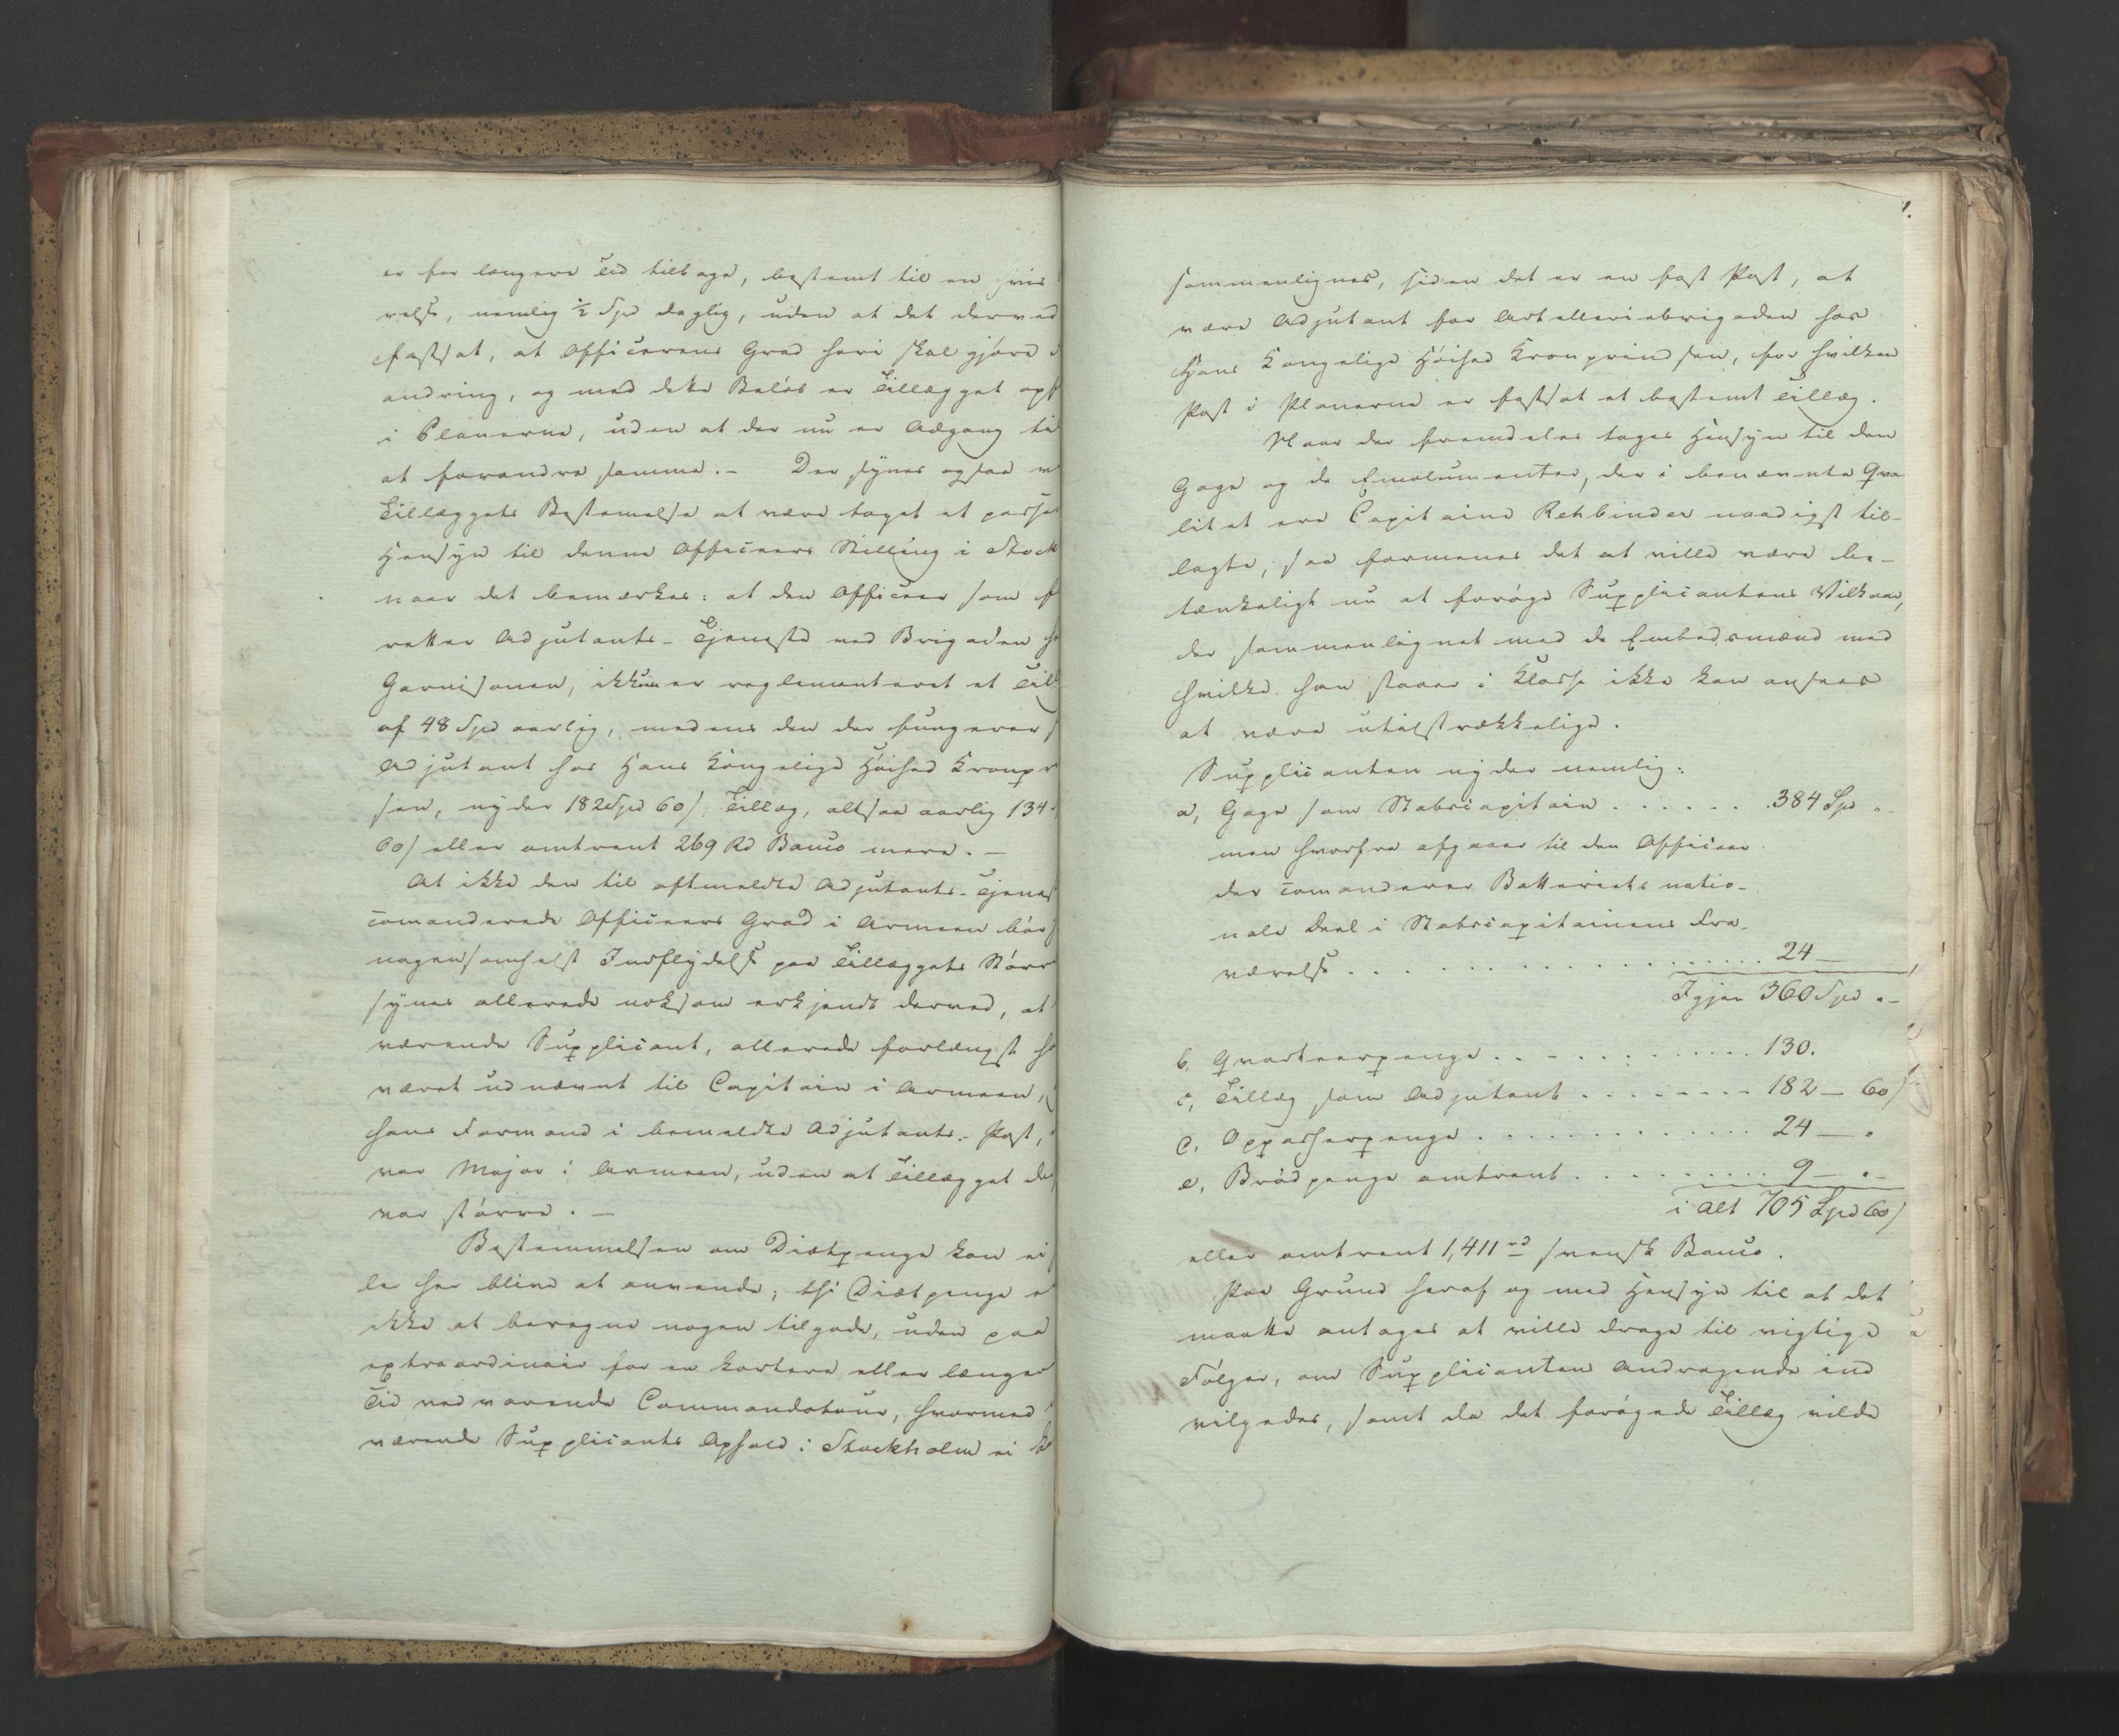 er for længere Tid tilbage, bestemt til en vis
relse, nemlig ½ Spd daglig, uden at det derved
fastsat, at Officerens Grad heri skal gjøre
andring, og med dette Beløb er Tillægget opf
i Planerne, uden at der nu er Adgang til
at forandre samme. – Der synes ogsaa v
Tillæggets Bestemmelse at være taget et passe
Hensyn til denne Officeers Stilling i Stock
naar det bemærkes: at den Officeer som f
retter Adjutants-Tjeneste ved Brigaden h
Garnisonen, ikkun er reglementeret et Till
af 48 Spd aarlig, medens den der fungerer s
Adjutant hos Hans Kongelige Høihed Kronpr
sen, nyder 182 Spd 60 s Tillæg, altsaa aarlig 134
60 s eller omtrent 269 Rd Banco mere. –
At ikke den til oftmeldte Adjutants-Tjenes
comanderede Officeers Grad i Armeen bør
nogensomhelst Indflydelse paa Tillæggets Størr
synes allerede noksom erkjendt derved, at
værende Supplicant, allerede forlængst h
været udnævnt til Capitain i Armeen,
hans Formand i bemeldte Adjutants-Post,
var Major i Armeen, uden at Tillægget de
var større. –
Bestemmelsen om Diætpenge kan ei
ler her blive at anvende; thi Diætpenge e
ikke at beregne nogen tilgode, uden paa
extraordinair for en kortere eller længer
Tid vedvarende Commandotour, hvormed
værende Supplicants Ophold i Stockholm ei k
sammenlignes, siden det er en fast Post, at
være Adjutant for Artilleriebrigaden hos
Hans Kongelige Høihed Kronprindsen, for hvilken
Post i Planerne er fastsat et bestemt Tillæg.
Naar der fremdeles tages Hensyn til den
Gage og de Emolumenter, der i benævnte Qva
litet ere Capitaine Rehbinder naadigst til-
lagte, saa formenes det at ville være be-
tænkeligt nu at forøge Supplicantens Vilkaar,
der sammenlignet med de Embedsmænd med
hvilke han staaer i Klasse ikke kan ansees
at være utilstrækkelige.
Supplicanten nyder nemlig:
a, Gage som Stabscapitain . . . . . . 384 Spd "
men hvorfra afgaaer til den Officeer
der comanderer Batteriets natio-
nale Deel i Stabscapitainens Fra-
værelse . . . . . . . . . . . . 24 –
Igjen 360 Spd " –
b, Qvarteerpenge . . . . . . . . . . 130.
c, Tillæg som Adjutant . . . . . . . . 182 – 60 s
d, Oppasserpenge . . . . . . . . . . 24 – "
e, Brødpenge omtrent . . . . . . . . 9 – " –
i Alt 705 Spd 60 s
eller omtrent 1,411 rd svensk Banco.
Paa Grund heraf og med Hensyn til at det
maatte antages at ville drage til vigtige
Følger, om Supplicantens Andragende ind
vilgedes, samt da det forøgede Tillæg vilde